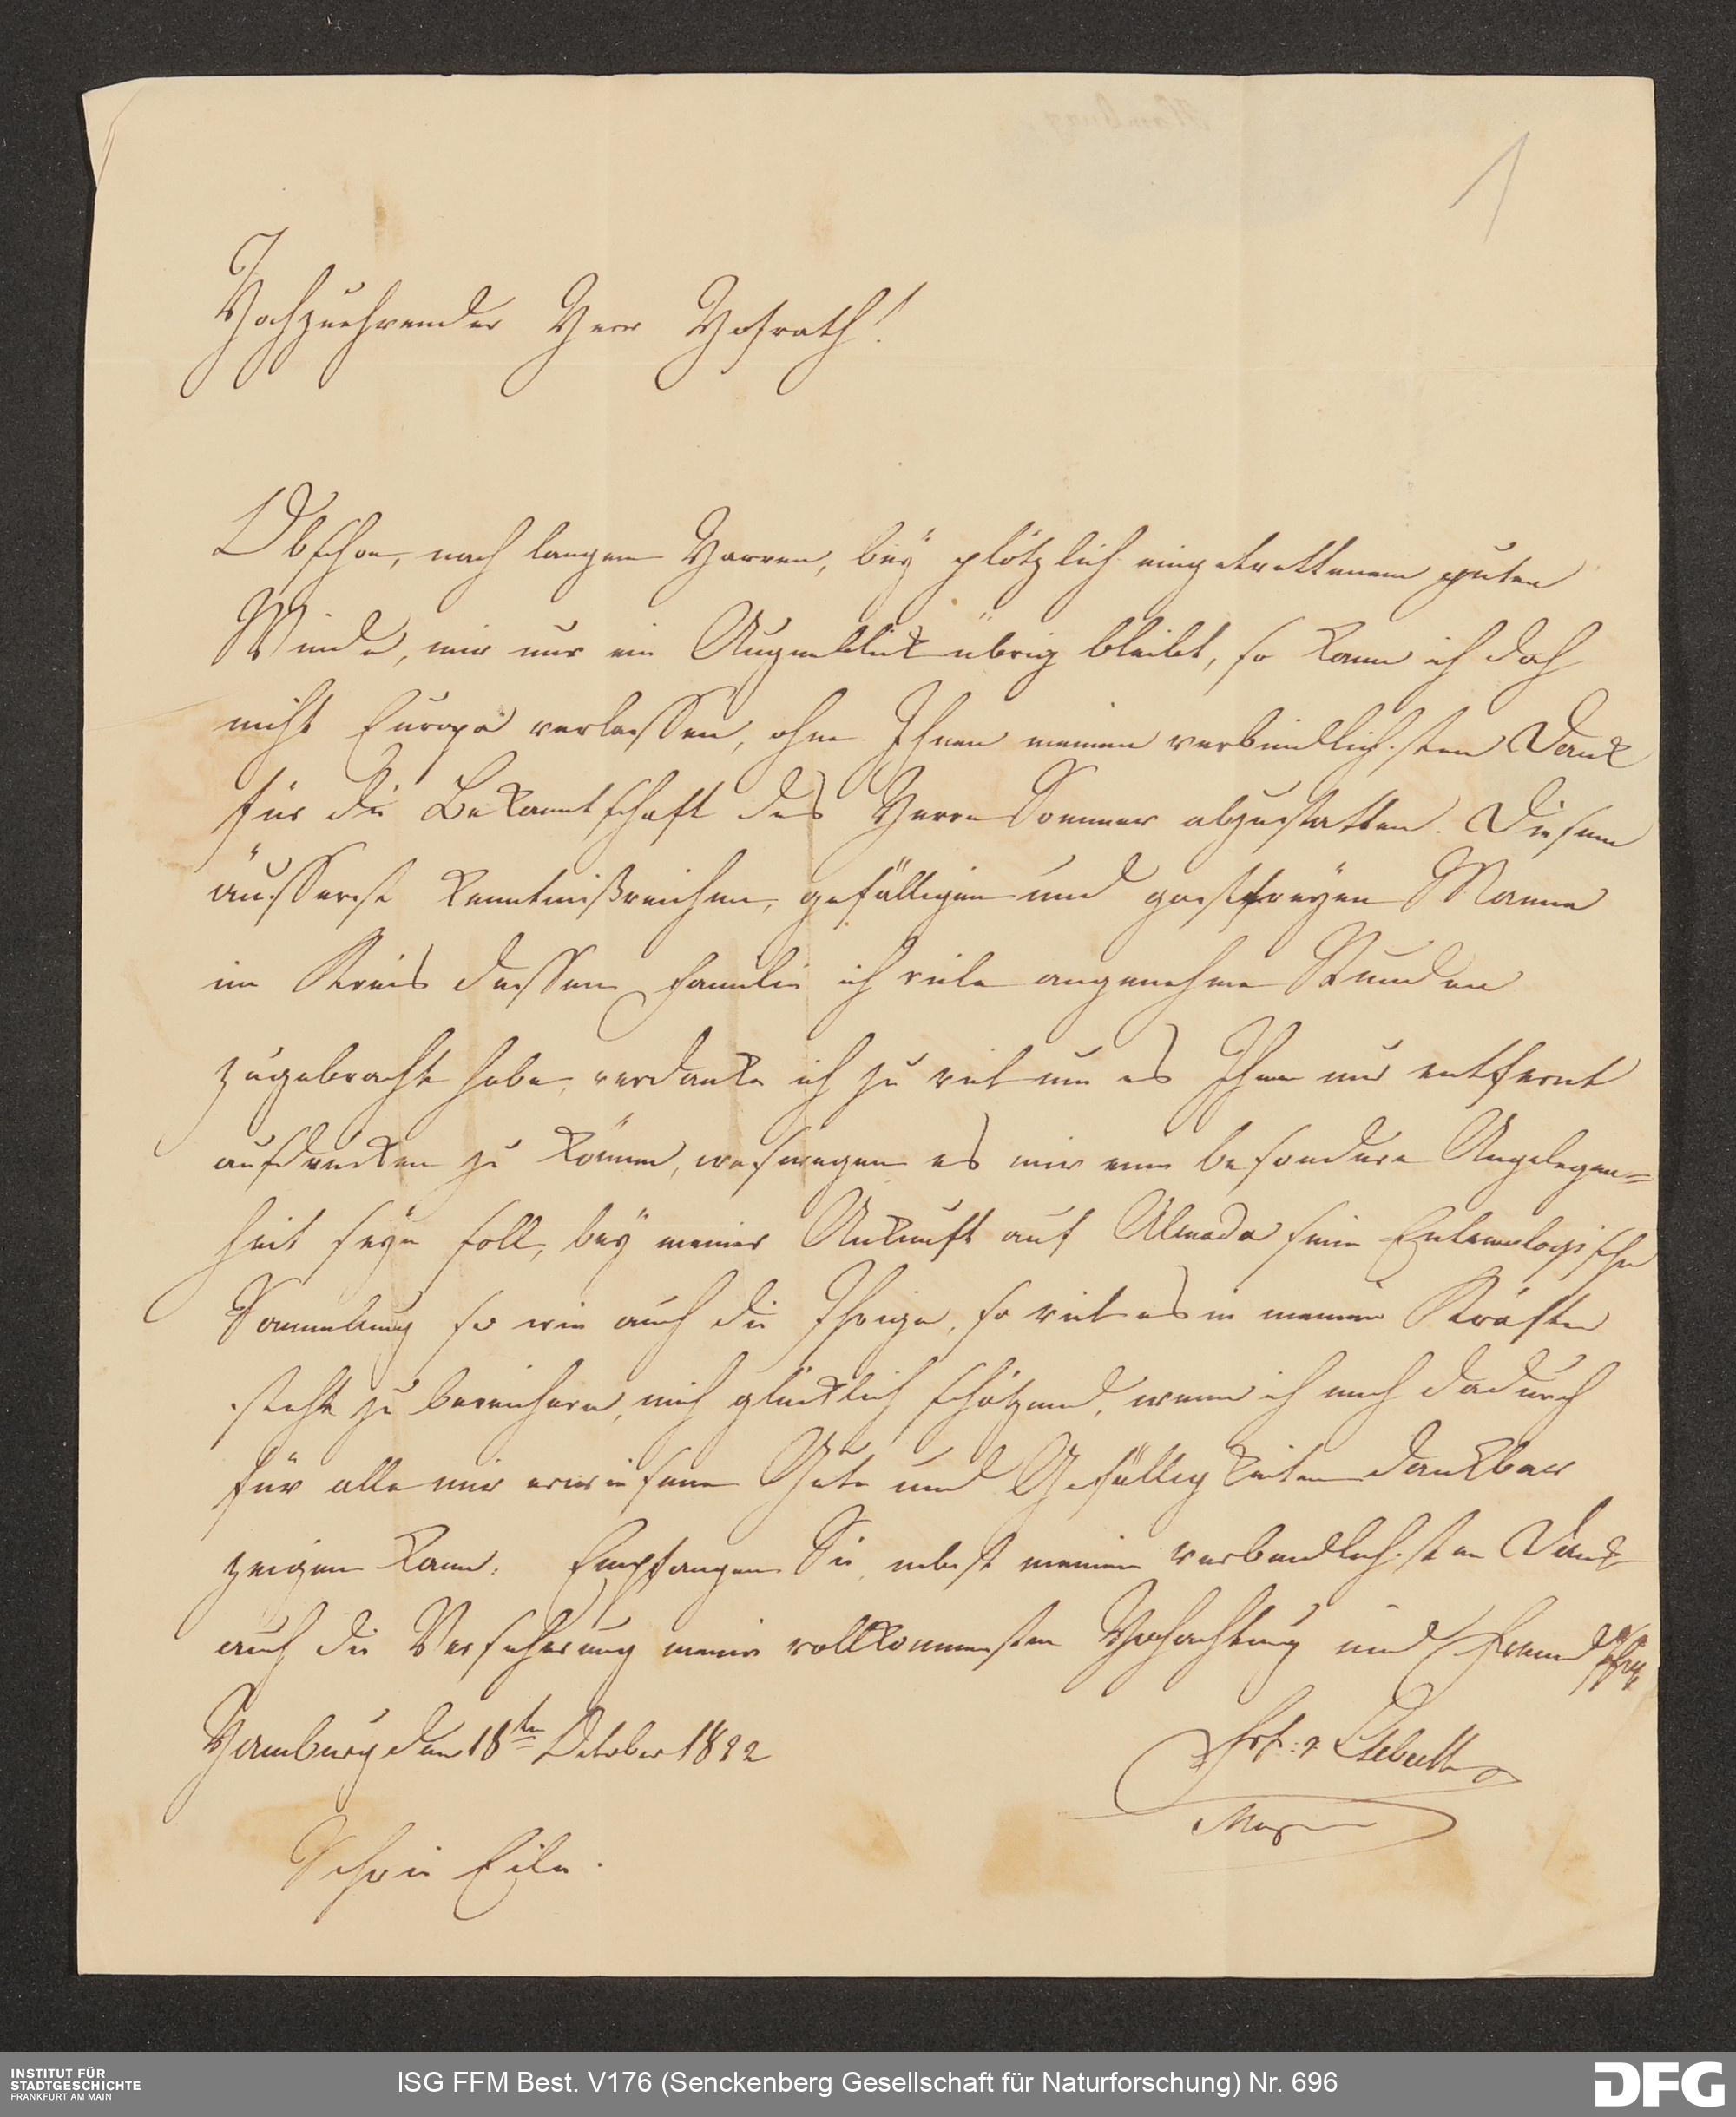 1
Hochzuehrender Herr Hofrath!
Obschon, nach langem Harren, bey plötzlich eingetrettenem guten
Winde, mir nur ein Augenblick übrig bleibt, so kann ich doch
nicht Europa verlassen, ohne Ihnen meinen verbindlichsten Dank
für die Bekanntschaft des Herrn Sommer abzustatten. Diesem
äusserst kenntnißreichen, gefälligen und gastfreyen Manne
im Kreis dessen Familie ich viele angenehme Stunden
zugebracht habe, verdanke ich zu viel um es Ihnen nur entfernt
ausdrücken zu können, weswegen es mir eine besondere Angelegen=
heit seyn soll, bey meiner Ankunft auf Almada seine Entomologische
Sammlung so wie auch die Ihrige, so viel es in meinen Kräften
steht zu bereichern, mich glücklich schätzend, wenn ich mich dadurch
für alle mir erwiesene Güte und Gefälligkeiten dankbar
zeigen kann. Empfangen Sie nebst meinem verbindlichsten Dank
auch die Versicherung meiner vollkommensten Hochachtung und Freundschaft
Hamburg den 18ten October 1822
Sehr in Eile.
INSTITUT FÜR
STADTGESCHICHTE
FRANKFURT AM MAIN
ISG FFM Best. V176 (Senckenberg Gesellschaft für Naturforschung) Nr. 696
DFG